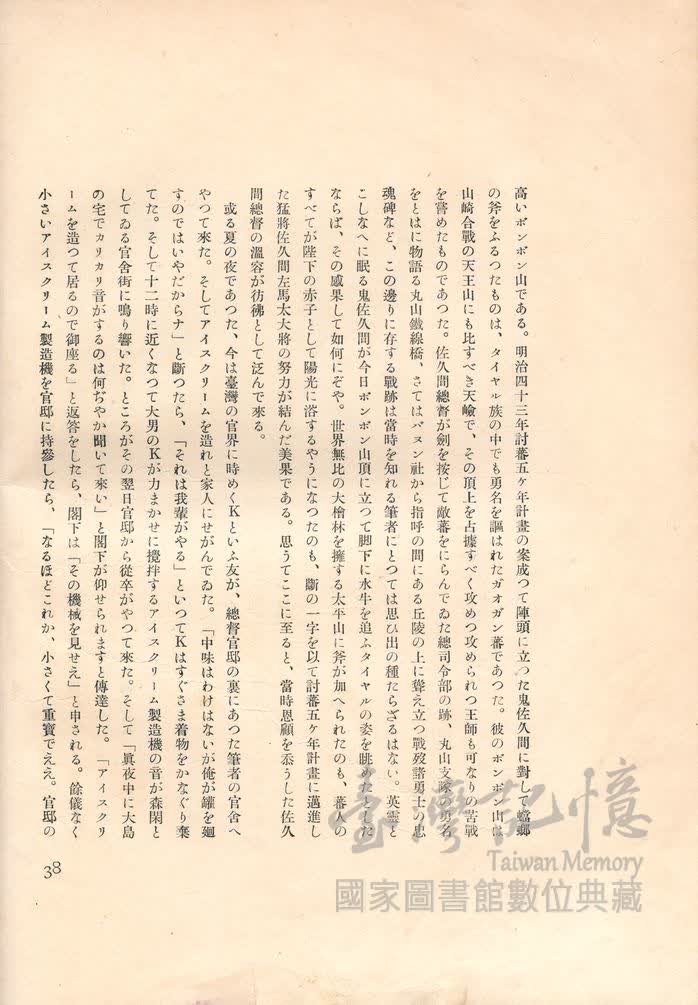 高いボンボン山である。明治四十三年討蕃五ケ年計畫の案成つて陣頭に立つた鬼佐久間に對して蟷螂
の斧をふるつたものは、タイヤル族の中でも勇名を謳はれたガオガン蕃であつた。彼のボンボン山は
山崎合戰の天王山にも比すべき天嶮で、その頂上を占據すべく攻めつ攻められつ王師も可なりの苦戰
を嘗めたものであつた。佐久間總督が劍を按じて敵蕃をにらんでゐた總司令部の跡、丸山支隊の勇名
をとはに物語る丸山鐵線橋、さてはバヌン社から指呼の間にある丘陵の上に聳え立つ戰歿諸勇士の忠
魂碑など、この邊りに存する戰跡は當時を知れる筆者にとつては思ひ出の種たらざるはない。英靈と
こしなへに眠る鬼佐久間が今日ボンボン山頂に立つて脚下に水牛を追ふタイヤルの姿を眺めたとした
ならば、その感果して如何にぞや。世界無比の大檜林を擁する太平山に斧が加へられたのも、蕃人の
すべてが陛下の赤子として陽光に浴するやうになつたのも、斷の一字を以て討蕃五ケ年計畫に邁進し
た猛將佐久間左馬太大將の努力が結んだ美果である。思うてここに至ると、當時恩顧を忝うした佐久
間總督の溫容が彷彿として泛んで來る。
或る夏の夜であつた、今は臺灣の官界に時めくKといふ友が、總督官邸の裏にあつた筆者の官舍へ
やつて來た。そしてアイスクリームを造れと家人にせがんでゐた。「中味はわけはないが俺が罐を廻
すのではいやだからナ」と斷つたら、「それは我輩がやる」といつてKはすぐさま着物をかなぐり棄
てた。そして十二時に近くなつて大男のKが力まかせに攪拌するアイスクリーム製造機の音が森閑と
してゐる官舍街に鳴り響いた。ところがその翌日官邸から從卒がやつて來た。そして「眞夜中に大島
の宅でカリカリ音がするのは何ぢやか聞いて來い」と閣下が仰せられますと傳達した。「アイスクリ
ームを造つて居るので御座る」と返答をしたら、閣下は「その機械を見せえ」と申される。餘儀なく
小さいアイスクリーム製造機を官邸に持參したら、「なるほどこれか、小さくて重寶でええ。官邸の
38
臺灣記憶
Taiwan Memory
國家圖書館數位典藏